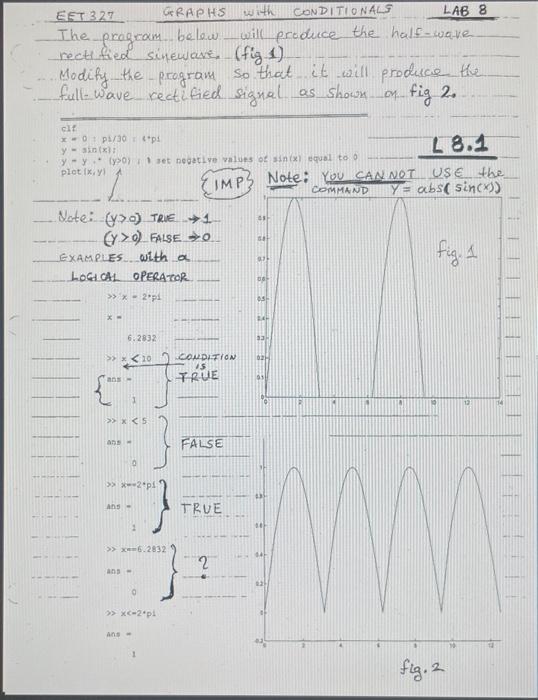 EET 327 GRAPHS with CONDITIONALS LAB 8
The program below will produce the half-wave
rectified sinewave. (fig 1)
Modify the program so that it will produce the
full-wave rectified signal as shown on fig 2.
clf
x = 0 : pi/30 : 4*pi
y = sin(x);
y = y .* (y>0) ; % set negative values of sin(x) equal to 0
plot(x,y)
L 8.1
IMP Note: YOU CANNOT USE the
COMMAND Y = abs( sin(x))
Note: (y>0) TRUE → 1
(y>0) FALSE → 0
EXAMPLES with a
LOGICAL OPERATOR
>> x = 2*pi
x =
6.2832
>> x < 10
ans =
1
CONDITION
IS
TRUE
>> x < 5
ans =
0
FALSE
>> x==2*pi
ans =
1
TRUE
>> x==6.2832
ans =
0
?
>> x<=2*pi
ans =
1
fig. 1
1
0.9
0.8
0.7
0.5
0.4
0.3
0.2
0.1
0 2 4 6 8 10 12 14
1
0.8
0.6
0.4
0.2
0
-0.2
2 4 6 8 10 12
fig. 2